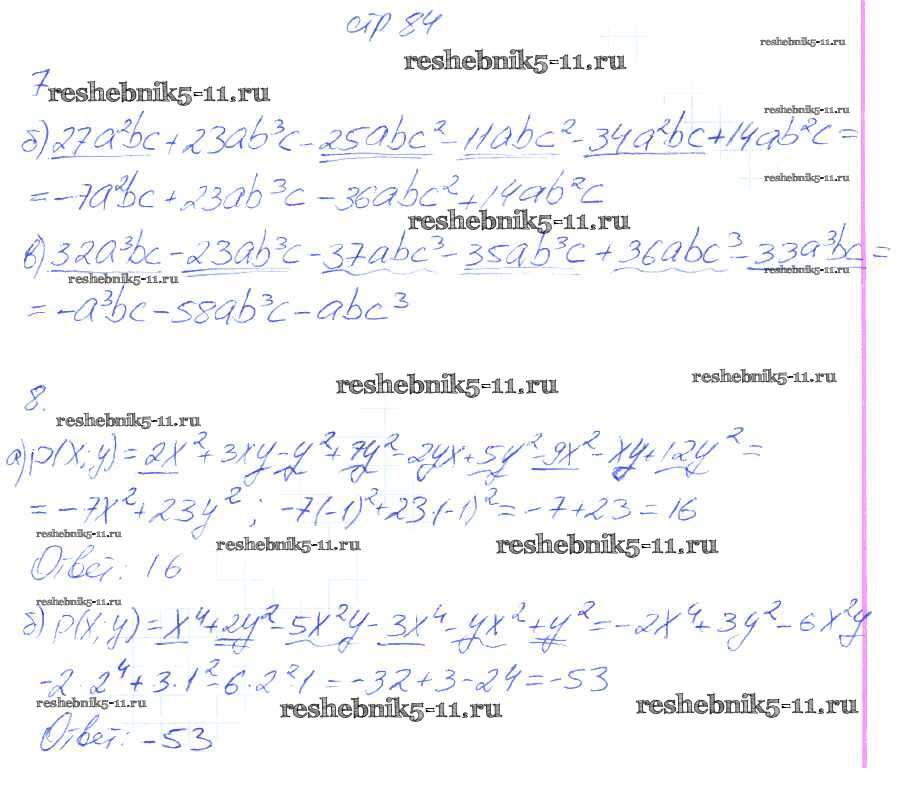 стр 84
reshebnik5-11.ru
reshebnik5-11.ru
7
reshebnik5-11.ru
reshebnik5-11.ru
б) 27a²bc + 23ab³c - 25abc² - 11abc² - 34a²bc + 14ab²c =
reshebnik5-11.ru
= -7a²bc + 23ab³c - 36abc² + 14ab²c
reshebnik5-11.ru
в) 32a³bc - 23ab³c - 37abc³ - 35ab³c + 36abc³ - 33a³bc =
reshebnik5-11.ru
reshebnik5-11.ru
= -a³bc - 58ab³c - abc³
reshebnik5-11.ru
reshebnik5-11.ru
8.
reshebnik5-11.ru
а) p(x;y) = 2x² + 3xy - y² + 7y² - 2yx + 5y² - 9x² - xy + 12y² =
= -7x² + 23y² ; -7(-1)² + 23·(-1)² = -7 + 23 = 16
reshebnik5-11.ru
reshebnik5-11.ru
reshebnik5-11.ru
Ответ: 16
reshebnik5-11.ru
б) p(x;y) = x⁴ + 2y² - 5x²y - 3x⁴ - yx² + y² = -2x⁴ + 3y² - 6x²y
-2·2⁴ + 3·1² - 6·2²·1 = -32 + 3 - 24 = -53
reshebnik5-11.ru
reshebnik5-11.ru
reshebnik5-11.ru
Ответ: -53